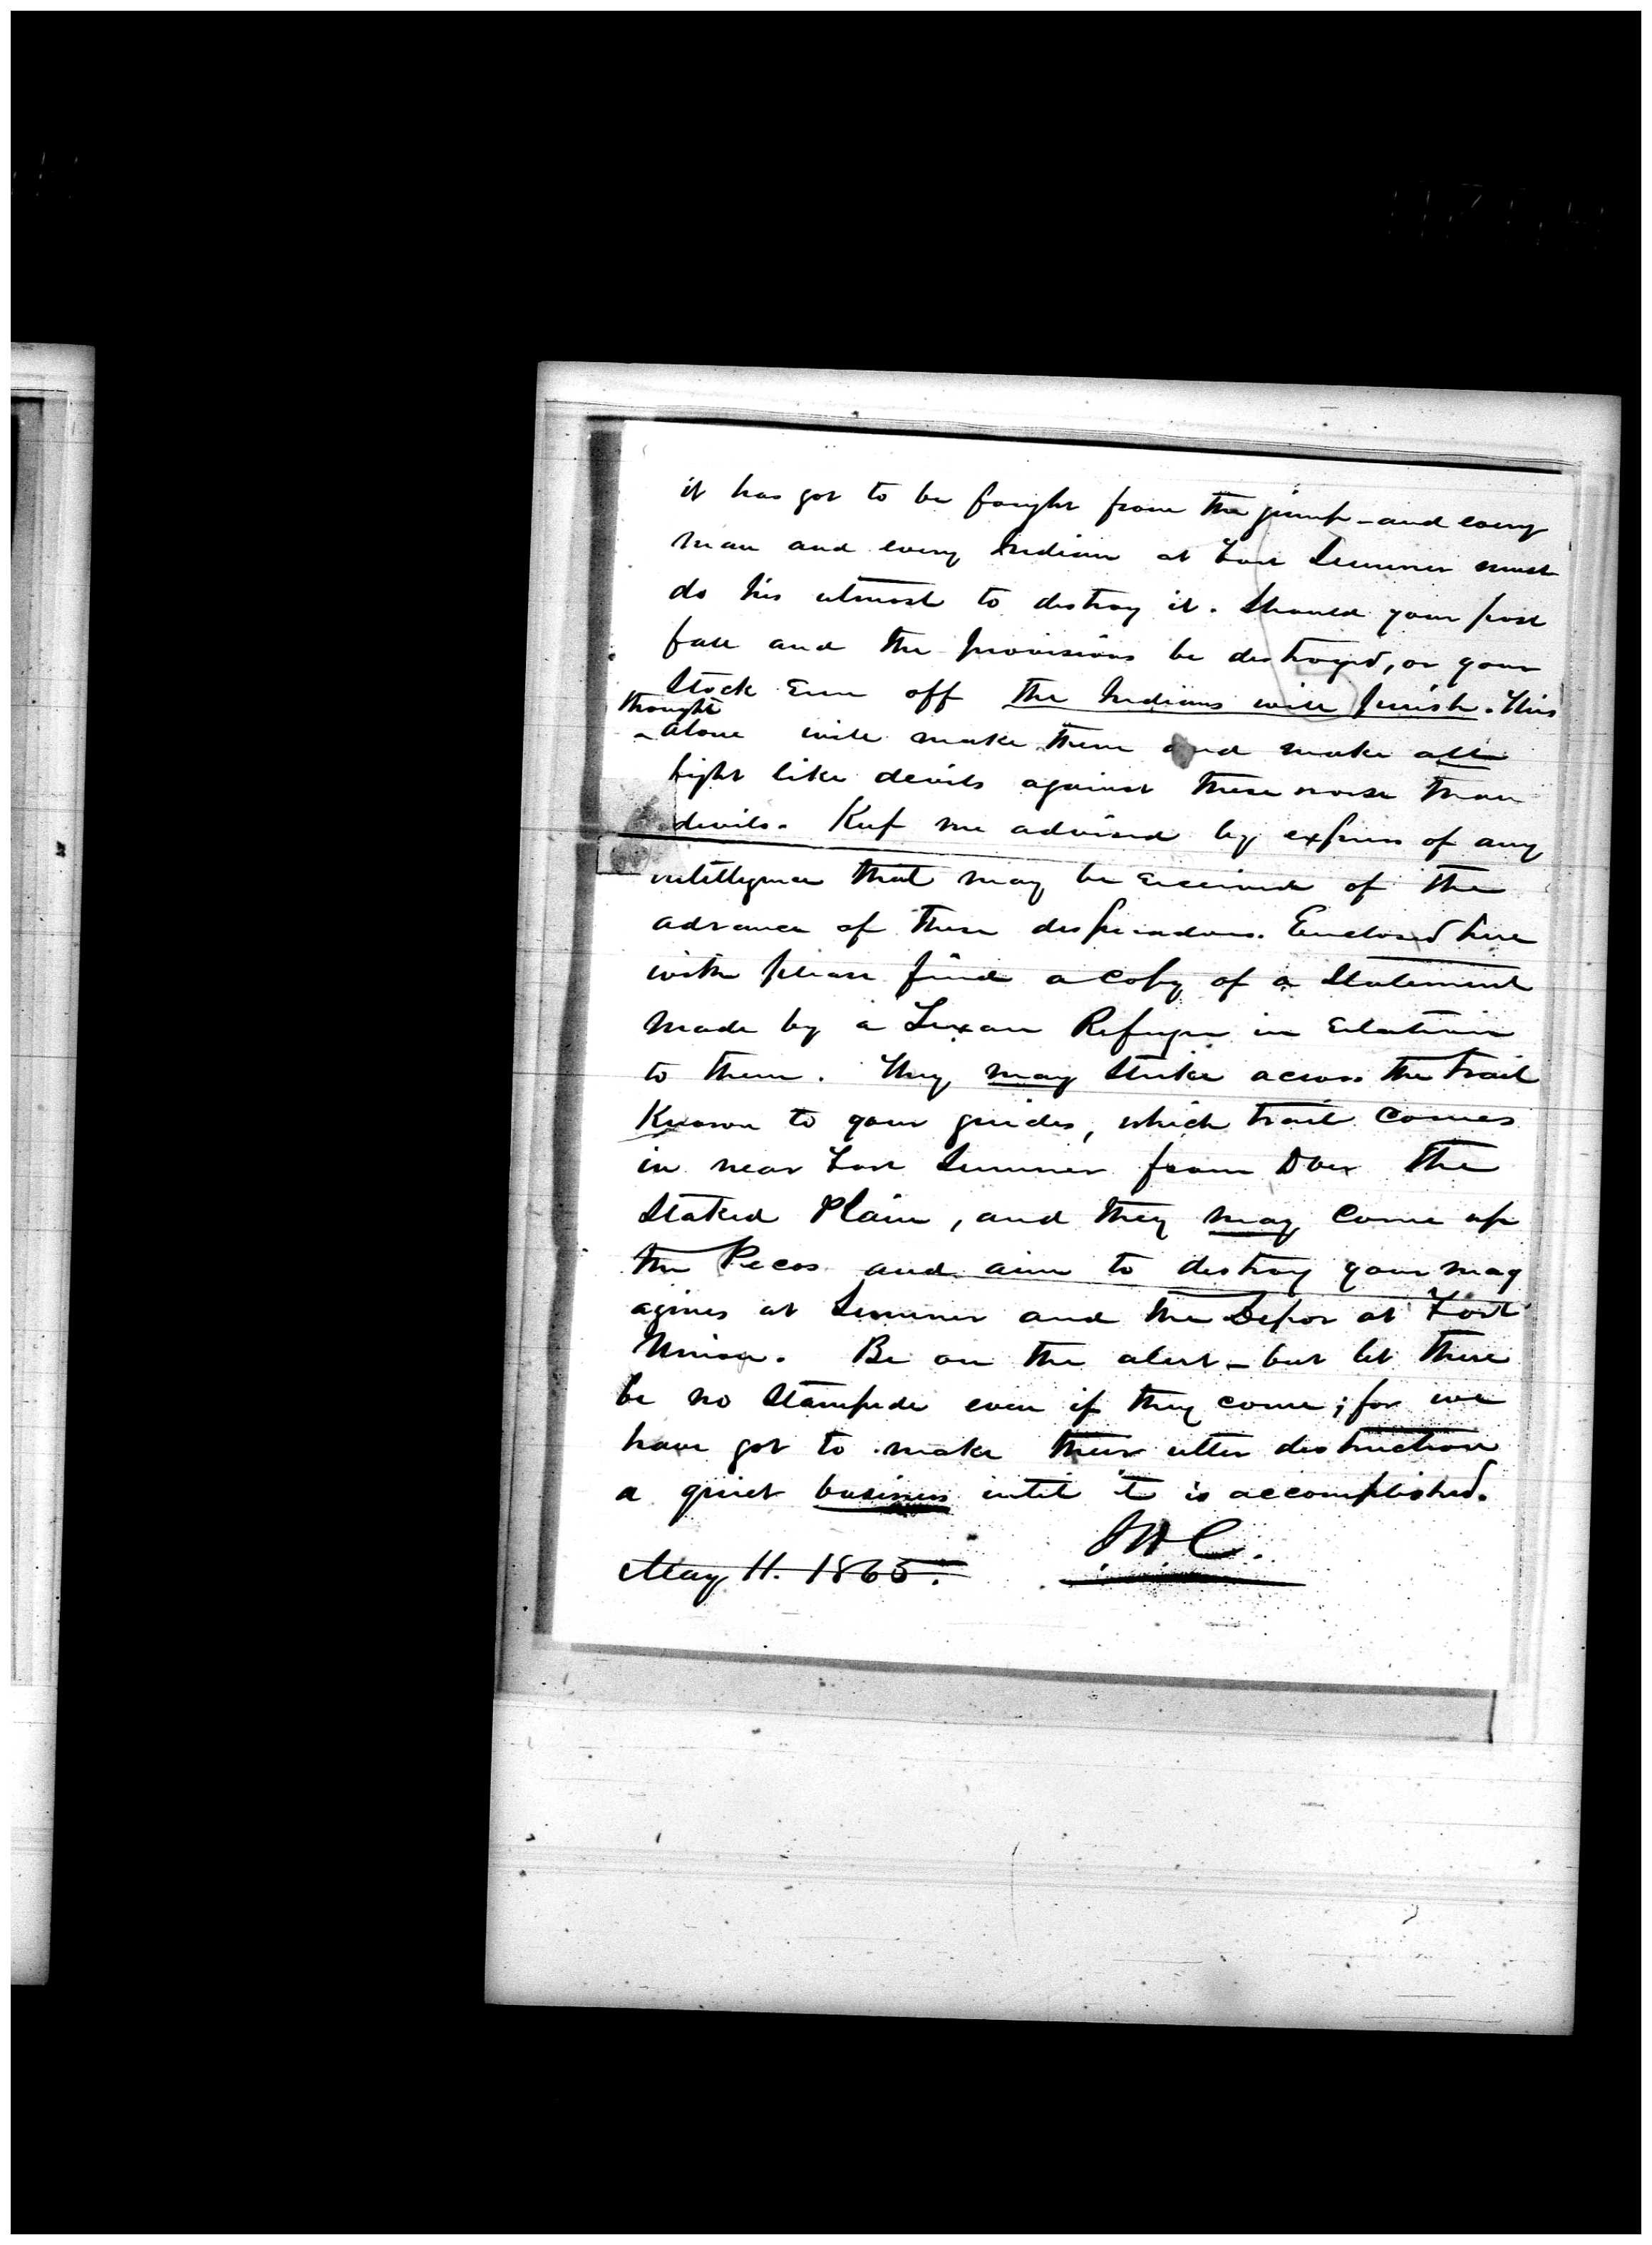 it has got to be fought from the jump – and every
man and every Indian at Fort Sumner must
do his utmost to destroy it. Should your post
fall and the provisions be destroyed, or your
stock run off the Indians will perish. This
thought
alone will make them and make all
fight like devils against these worse than
devils. Keep me advised by express of any
intelligence that may be received of the
advance of these desperadoes. Enclosed here
with please find a copy of a statement
made by a Texan Refugee in relation
to them. They may strike across the trail
known to your guides, which trail comes
in near Fort Sumner from over the
Staked Plain, and they may come up
the Pecos and aim to destroy your mag
azines at Sumner and the Depot at Fort
Union. Be on the alert – but let there
be no stampede even if they come; for we
have got to make their utter destruction
a quiet business until it is accomplished.
JHC.
May 11. 1865.